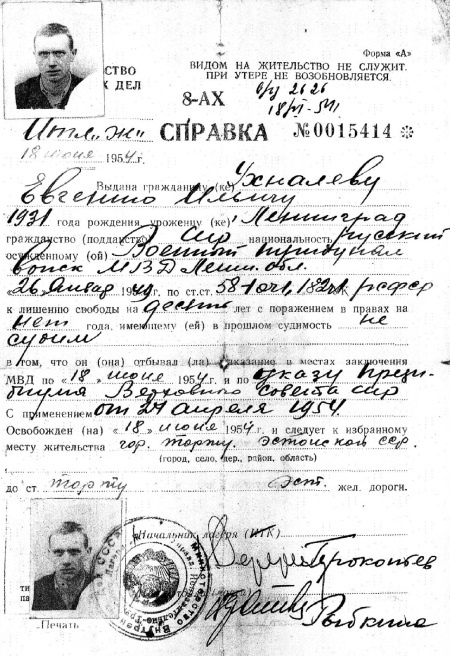 Форма «А»
СТВО ВИДОМ НА ЖИТЕЛЬСТВО НЕ СЛУЖИТ.
Х ДЕЛ ПРИ УТЕРЕ НЕ ВОЗОБНОВЛЯЕТСЯ.
8-АХ
СПРАВКА №0015414
18 июня 1954 г.
Выдана гражданину (ке) Ухналеву
Евгению Ильичу
1931 года рождения, уроженцу (ке) Ленинград
гражданство (подданство) национальность русский
осужденному (ой) Военный трибунал
войск МВД Ленин. обл.
«26» января по ст.ст. РСФСР
к лишению свободы на десять лет с поражением в правах на
нет года, имеющему (ей) в прошлом судимость не
судим
в том, что он (она) отбывал (ла) наказание в местах заключения
МВД по «18» июня 1954 г. и по указу Прези-
диума Верховного Совета СССР
С применением от 24 апреля 1954.
Освобожден (на) «18» июня 1954 г. и следует к избранному
месту жительства гор. Тарту. Эстонской ССР.
(город, село, дер., район, область)
до ст. Тарту Эст. жел. дороги.
Начальник лагеря (ИТК)
Печать